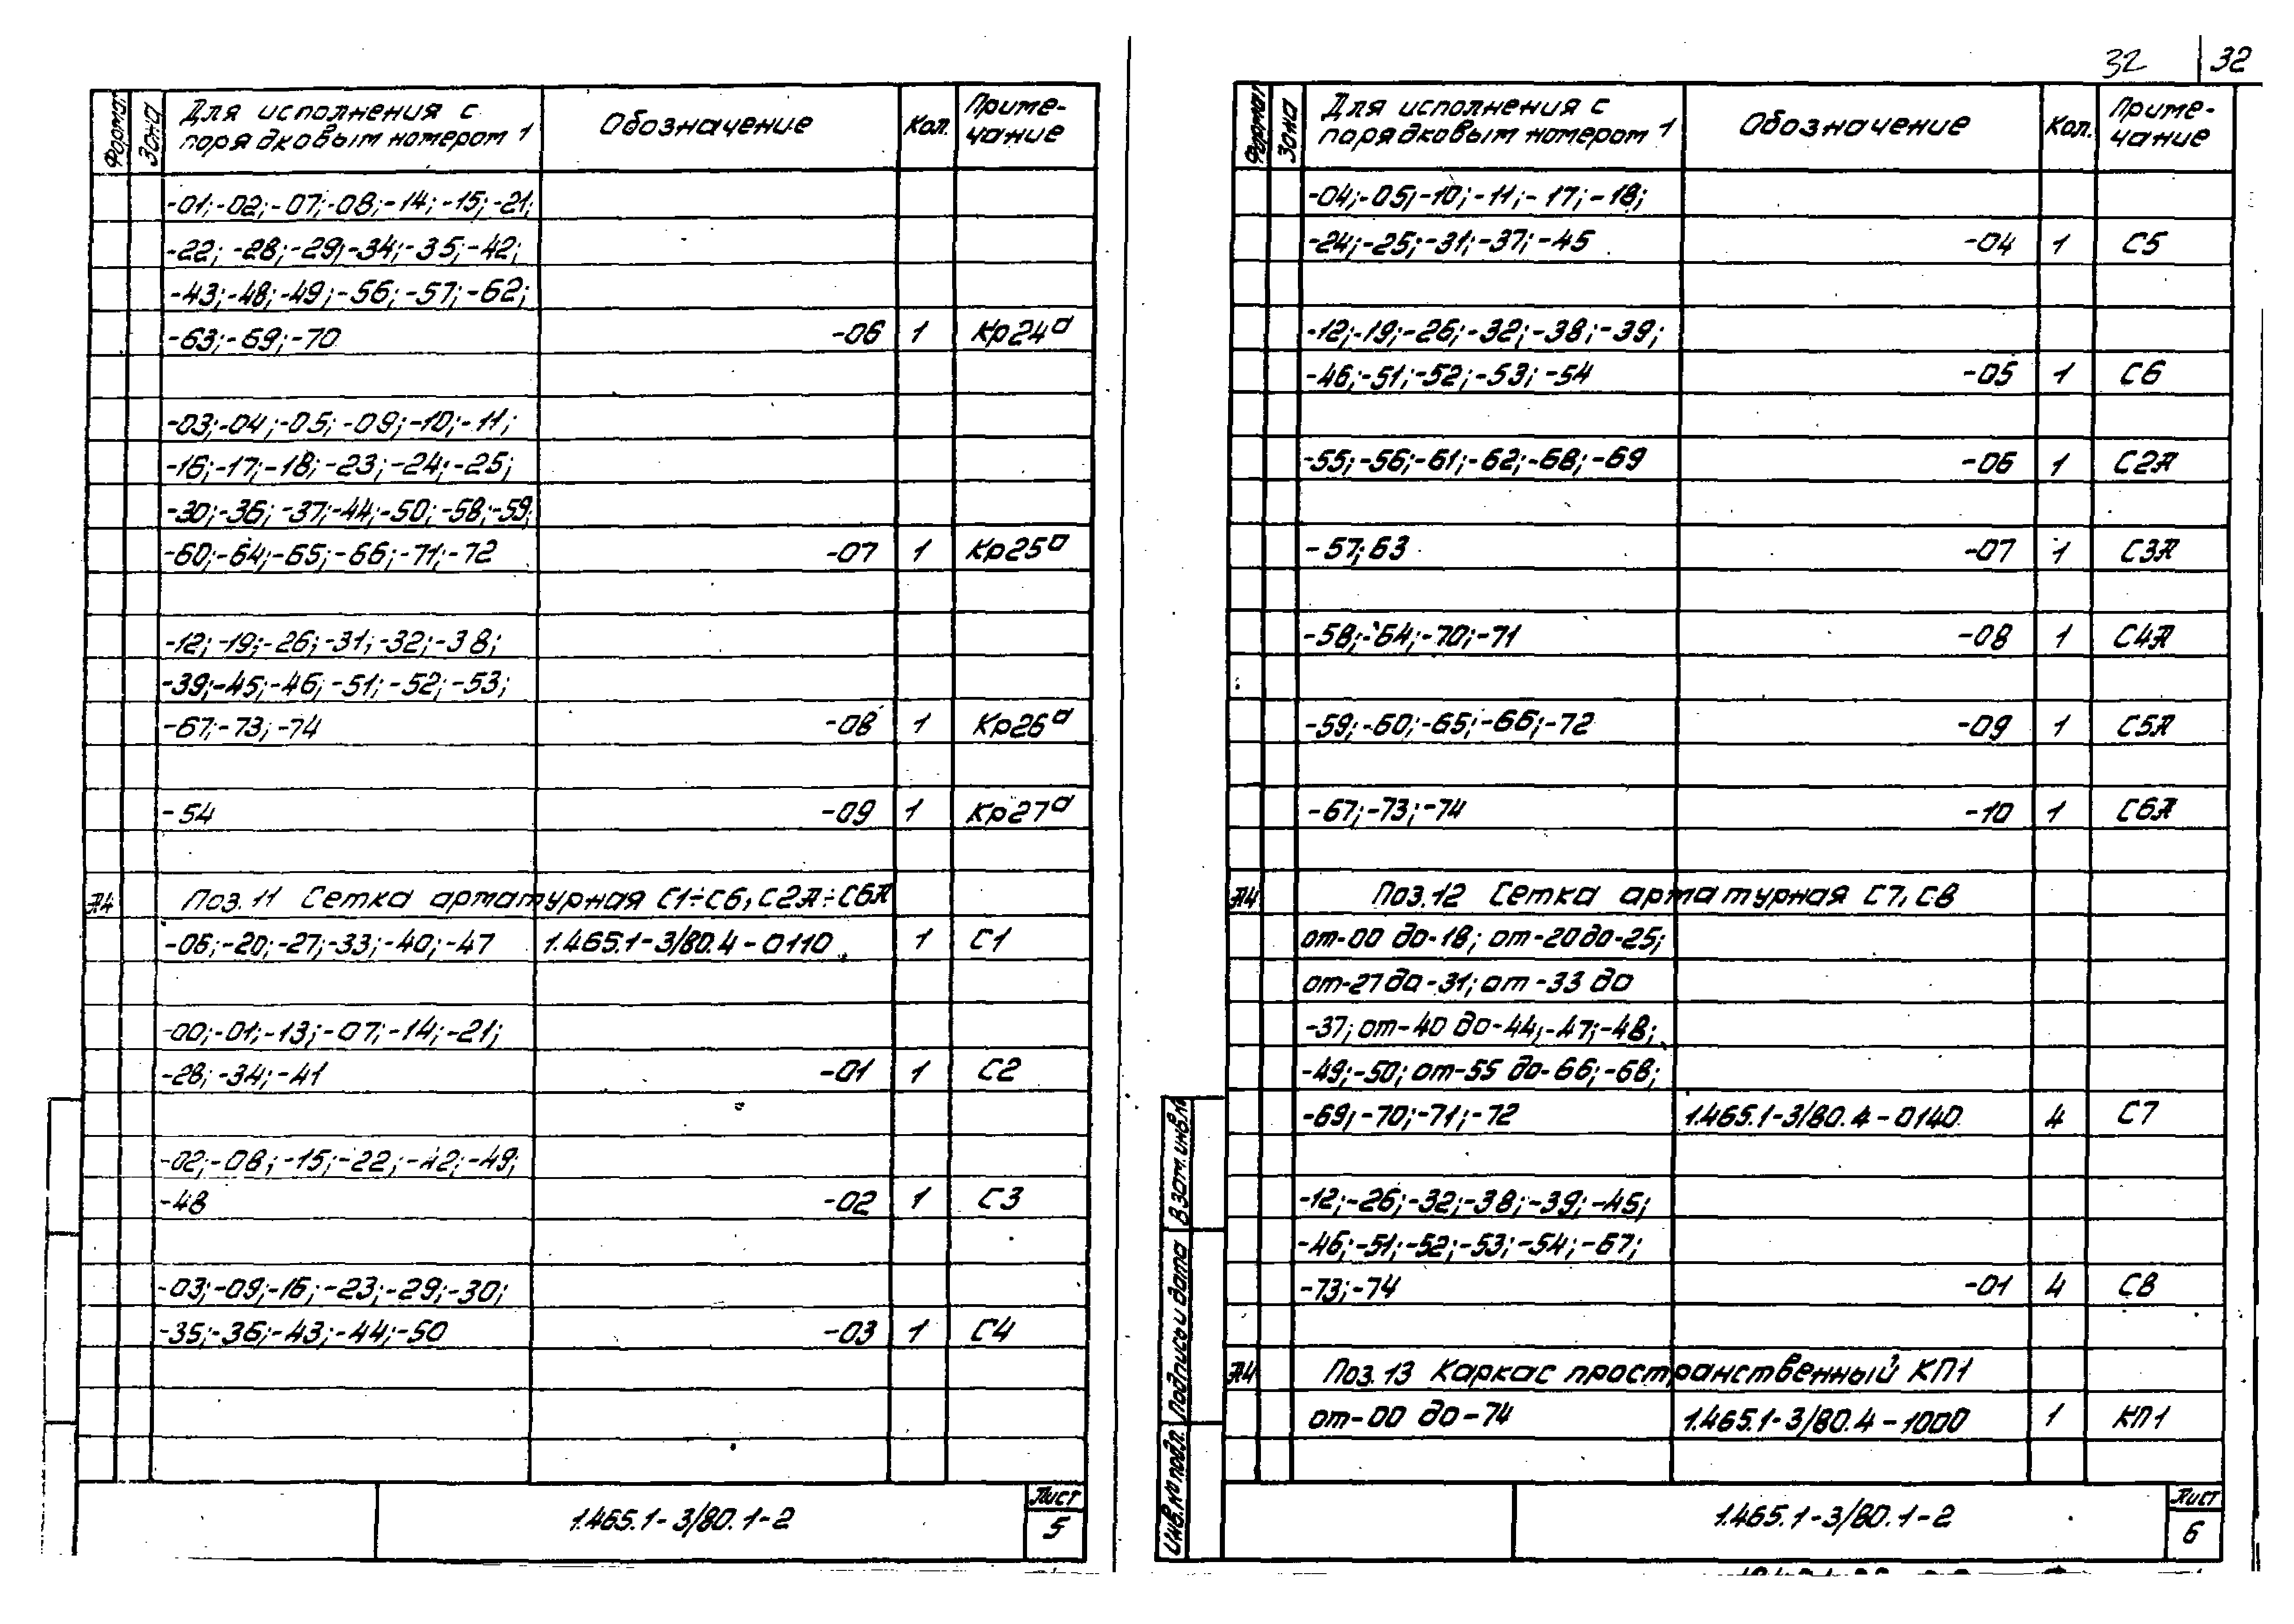 32 32
Формат Зона Для исполнения с порядковым номером 1 Обозначение Кол. Приме-чание
-01;-02;-07;-08;-14;-15;-21;
-22; -28;-29;-34;-35;-42;
-43;-48;-49;-56;-57;-62;
-63;-69;-70 -06 1 Кр24а
-03;-04;-05; -09;-10;-11;
-16;-17;-18;-23;-24;-25;
-30;-36; -37;-44;-50;-58;-59;
-60;-64;-65;-66;-71;-72 -07 1 Кр25а
-12; -19;-26;-31;-32;-38;
-39;-45;-46;-51;-52;-53;
-67;-73;-74 -08 1 Кр26а
-54 -09 1 Кр27а
А4 Поз. 11 Сетка арматурная С1÷С6, С2А÷С6А
-06;-20;-27;-33;-40;-47 1.465.1-3/80.4-0110 1 С1
-00;-01;-13;-07;-14;-21;
-28; -34;-41 -01 1 С2
-02;-08;-15;-22;-42;-49;
-48 -02 1 С3
-03;-09;-16;-23;-29;-30;
-35;-36;-43;-44;-50 -03 1 С4
1.465.1-3/80.1-2 Лист 5
Формат Зона Для исполнения с порядковым номером 1 Обозначение Кол. Приме-чание
-04;-05;-10;-11;-17;-18;
-24;-25;-31;-37;-45 -04 1 С5
-12;-19;-26;-32;-38;-39;
-46;-51;-52;-53;-54 -05 1 С6
-55;-56;-61;-62;-68;-69 -06 1 С2А
-57;63 -07 1 С3А
-58;-64;-70;-71 -08 1 С4А
-59;-60;-65;-66;-72 -09 1 С5А
-67;-73;-74 -10 1 С6А
А4 Поз. 12 Сетка арматурная С7, С8
от-00 до-18; от-20 до-25;
от-27 до-31; от-33 до
-37; от-40 до-44;-47;-48;
-49;-50; от-55 до-66;-68;
-69;-70;-71;-72 1.465.1-3/80.4-0140 4 С7
-12;-26;-32;-38;-39;-45;
-46;-51;-52;-53;-54;-67;
-73;-74 -01 4 С8
А4 Поз. 13 Каркас пространственный КП1
от-00 до-74 1.465.1-3/80.4-1000 1 КП1
Инв.№ подл. Подпись и дата Взам.инв.№
1.465.1-3/80.1-2 Лист 6